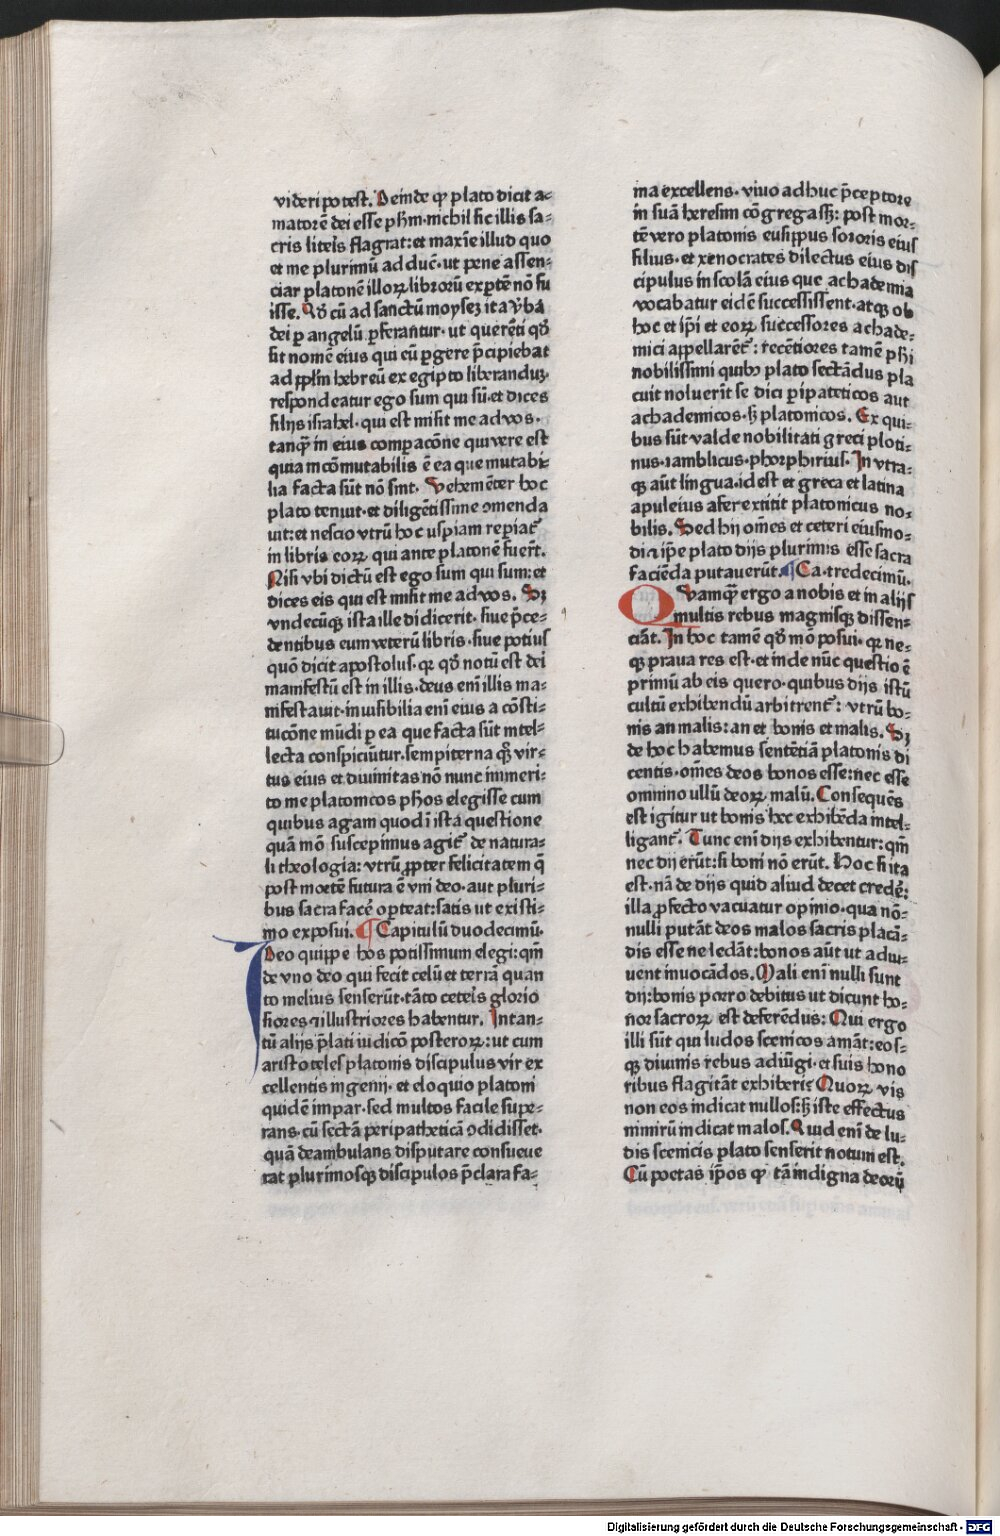 videri potest. Deinde qꝫ plato dicit a⸗
matorē dei esse ph̄m. nichil sic illis sa⸗
cris litēis flagrat: et maxīe illud quo
et me plurimū ad duc̄. ut pene assen⸗
ciar platonē illoꝝ libroꝝ exꝑtē nō fu
isse. Qd̄ cū ad sanctū moysez ita v̄ba
dei ꝑ angelū ꝑferantur. ut querēti qd̄
sit nomē eius qui eū ꝑgere p̄cipiebat
ad ppl̄m hebreū ex egipto liberanduꝫ.
respondeatur ego sum qui sū. et dices
filijs israhel. qui est misit me ad vos.
tanqꝫ in eius compacōne qui vere est
quia incōmutabilis ē ea que mutabi⸗
lia facta sūt nō sint. Vehemēter hoc
plato tenuit. et diligētissime ꝯmenda
uit: et nescio vtrū hoc uspiam reꝑiat̄
in libris eoꝝ qui ante platonē fuer̄t.
Nisi vbi dictū est ego sum qui sum: et
dices eis qui est misit me ad vos. Sꝫ
vndecūqꝫ ista ille didicerit. siue p̄ce⸗
dentibus eum veterū libris. siue potius
quō dicit apostolus. qꝛ qd̄ notū est dei
manifestū est in illis. deus eni illis ma⸗
nifestauit. inuisibilia eni eius a cōsti⸗
tucōne mūdi ꝑ ea que facta sūt intel⸗
lecta conspiciūtur. sempiterna qꝫ vir⸗
tus eius et diuinitas nō nunc immeri⸗
to me platonicos ph̄os elegisse cum
quibus agam quod ī ista questione
quā mō suscepimus agit̄ de natura⸗
li theologia: vtrū ꝓpter felicitatem q̄
post mortē futura ē vni deo. aut pluri⸗
bus sacra facē oꝑteat: satis ut existi⸗
mo exposui. ¶ Capitulū duodecimū.
Ideo quippe hos potissimum elegi: qm̄
de vno deo qui fecit celū et terrā quan
to melius senserūt. tāto cetēis glorio
siores ⁊ illustriores habentur. In tan⸗
tū alijs p̄lati iudicō posteroꝝ: ut cum
aristoteles platonis discipulus vir ex
cellentis ingenij. et eloquio platoni
quidē impar. sed multos facile supe⸗
rans. cū sectā peripatheticā ꝯdidisset.
quā deambulans disputare consueue
rat plurimosqꝫ discipulos p̄clara fa⸗
ma excellens. viuo adhuc p̄ceptore
in suā heresim cōgregasꝫ: post mor⸗
tē vero platonis eusippus sororis eius
filius. et xenocrates dilectus eius dis
cipulus in scolā eius que achademia
vocabatur eidē successissent. atqꝫ ob
hoc et ip̄i et eoꝝ successores achade⸗
mici appellarēt̄: recētiores tamē ph̄i
nobilissimi quibꝫ plato sectādus pla
cuit noluerīt se dici ꝑipateticos aut
achademicos. sꝫ platonicos. Ex qui⸗
bus sūt valde nobilitati greci ploti⸗
nus. iamblicus. phorphirius. In vtra⸗
qꝫ aūt lingua. id est et greca et latina
apuleius afer extitit platonicus no⸗
bilis. Sed hij om̄es et ceteri eiusmo⸗
di ⁊ ip̄e plato dijs plurimis esse sacra
faciēda putauerūt. ¶ Ca. tredecimū.
Quamqꝫ ergo a nobis et in alijs
multis rebus magnisqꝫ dissen⸗
ciāt. In hoc tamē qd̄ mō posui. qꝛ ne⸗
qꝫ praua res est. et inde nūc questio ē
primū ab eis quero. quibus dijs istū
cultū exhibendū arbitrent̄: vtrū bo⸗
nis an malis: an et bonis et malis. Sꝫ
de hoc habemus sentētiā platonis di
centis. om̄es deos bonos esse: nec esse
omnino ullū deoꝝ malū. Consequēs
est igitur ut bonis hec exhibēda intel⸗
ligant̄. Tunc eni dijs exhibentur: qm̄
nec dij erūt: si boni nō erūt. Hoc si ita
est. nā de dijs quid aliud decet crede̅:
illa ꝓfecto vacuatur opinio. qua nō⸗
nulli putāt deos malos sacris placā⸗
dis esse ne ledāt: bonos aūt ut adiu⸗
uent inuocādos. Mali eni nulli sunt
dij: bonis porro debitus ut dicunt ho⸗
nor sacroꝝ est deferēdus: Qui ergo
illi sūt qui ludos scenicos amāt: eos⸗
qꝫ diuinis rebus adiūgi. et suis hono
ribus flagitāt exhiberi: Quoꝝ vis
non eos indicat nullos: sꝫ iste effectus
nimirū indicat malos. Quid eni de lu⸗
dis scenicis plato senserit notum est.
Cū poetas ip̄os qꝫ tā indigna deorū
Digitalisierung gefördert durch die Deutsche Forschungsgemeinschaft - DFG